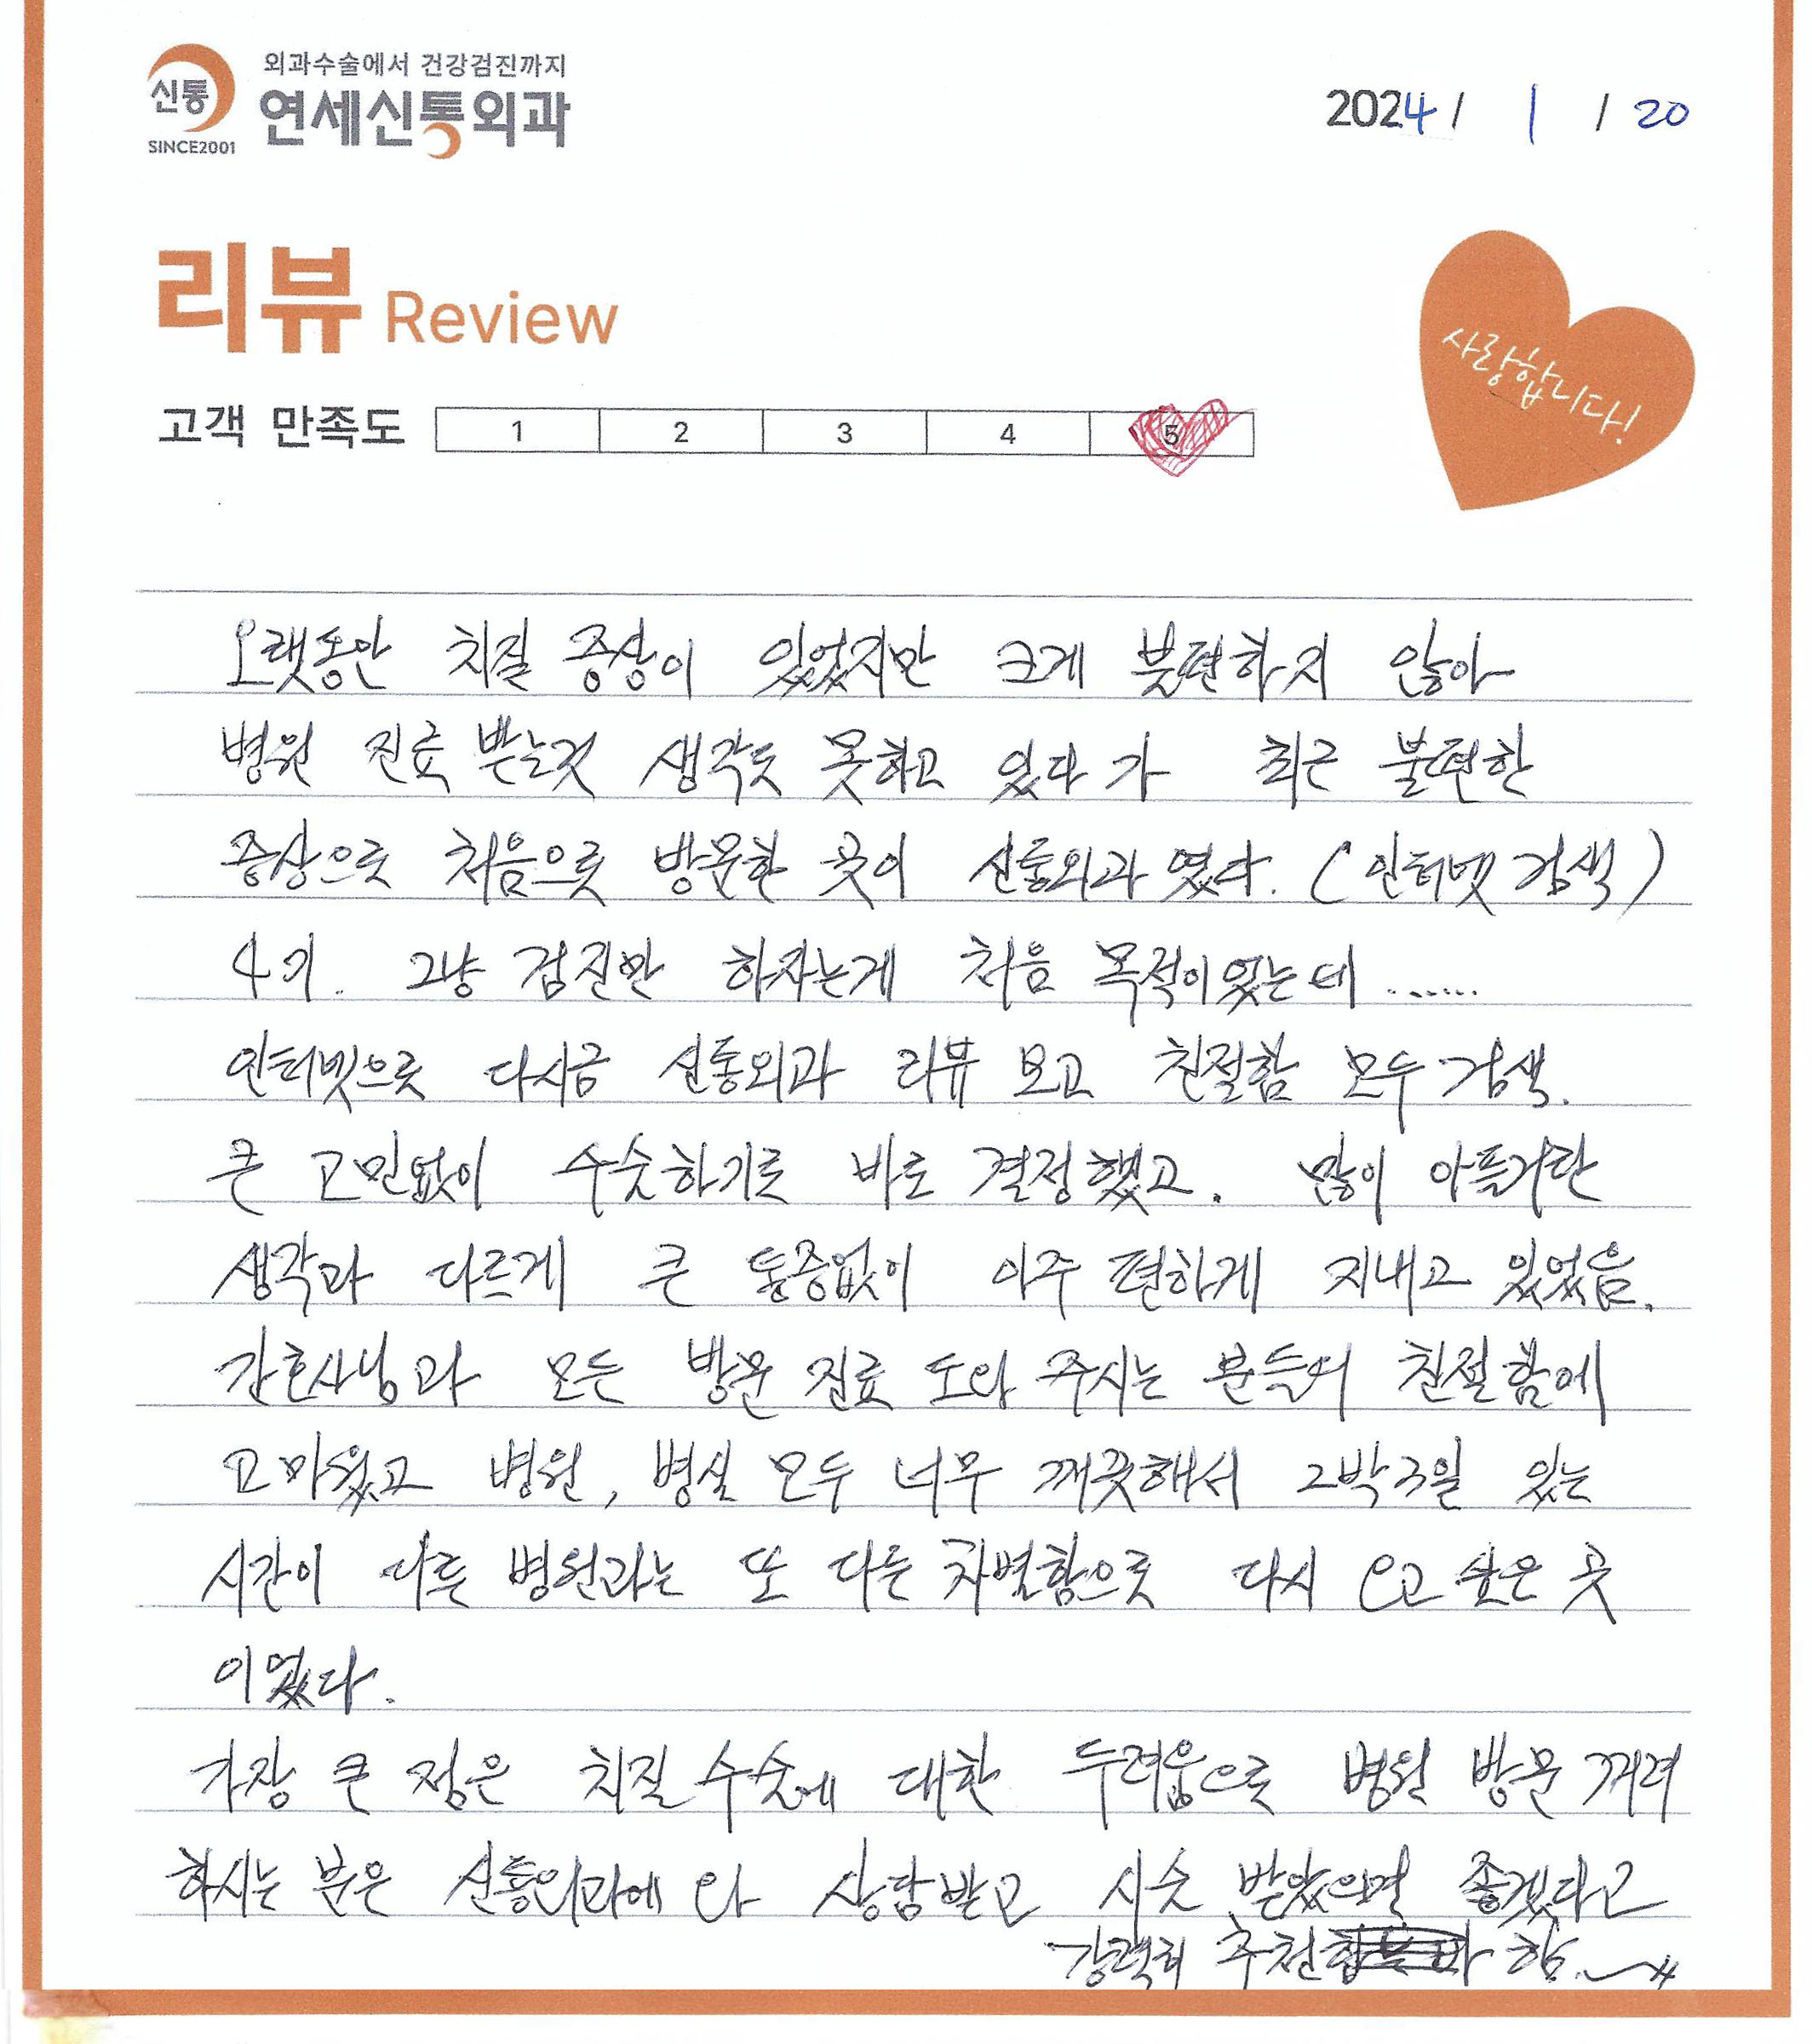 외과수술에서 건강검진까지
신통
연세신통외과
SINCE2001
2024 / 1 / 20
리뷰 Review
사랑합니다!
고객 만족도 1 2 3 4 5
오랫동안 치질 증상이 있었지만 크게 불편하지 않아
병원 진료 받는것 생각도 못하고 있다가 최근 불편한
증상으로 처음으로 방문한 곳이 신통외과 였다. (인터넷 검색)
4기. 그냥 검진만 하자는게 처음 목적이었는데 .......
인터넷으로 다시금 신통외과 리뷰 보고 친절함 모두 검색.
큰 고민없이 수술하기로 바로 결정했고. 많이 아플거란
생각과 다르게 큰 통증없이 아주 편하게 지내고 있었음.
간호사님과 모든 방문 진료 도와 주시는 분들의 친절함에
고마웠고 병원, 병실 모두 너무 깨끗해서 2박3일 있는
시간이 다른 병원과는 또 다른 차별함으로 다시 오고 싶은 곳
이였다.
가장 큰 점은 치질 수술에 대한 두려움으로 병원 방문 꺼려
하시는 분은 신통외과에 와 상담받고 시술 받았으면 좋겠다고
강력히 추천 함.